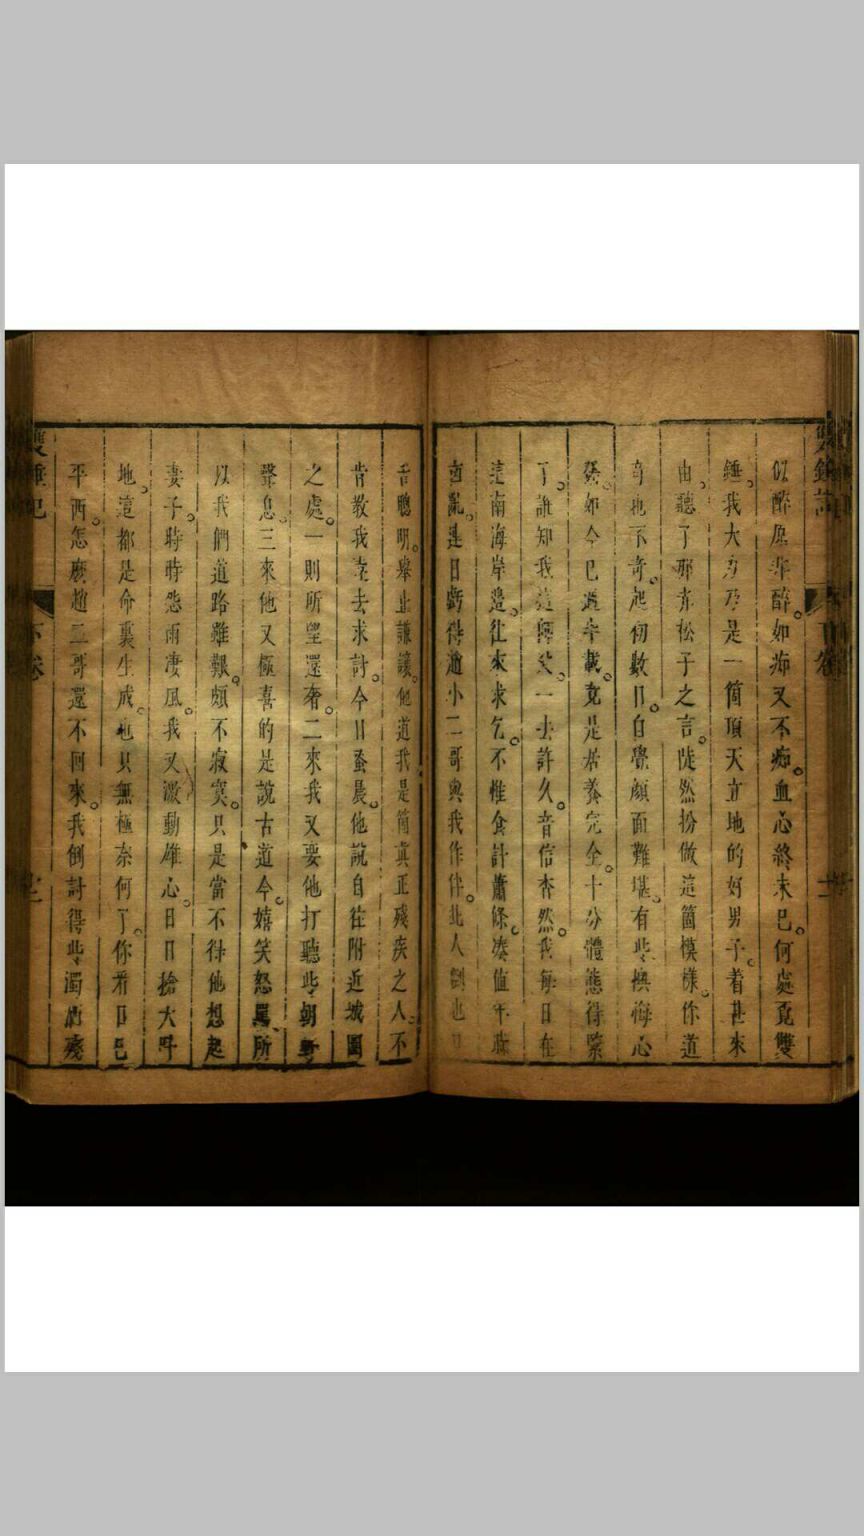 似醉原非醉。如痴又不痴。血心終未已。何處覓雙
錘。我大力乃是一箇頂天立地的好男子。着甚來
由。聽了那赤松子之言。陡然扮做這箇模樣。你道
奇也不奇。起初數日。自覺顏面難堪。有些懊悔心
發。如今已過半載。竟是居養完全。十分體態得緊
了。誰知我這師父。一去許久。音信杳然。我每日在
這南海岸邊。往來求乞。不惟食計蕭條。湊值年歲
凶亂。是日虧得趙小二哥與我作伴。此人倒也
舌聰明。舉止謙讓。他道我是箇真正殘疾之人。不
肯教我遠去求討。今日蚤晨。他說自往附近城圍
之處。一則所望還奢。二來我又要他打聽些朝野
聲息。三來他又極喜的是說古道今。嬉笑怒罵。所
以我們道路雖艱。頗不寂寞。只是當不得他想起
妻子。時時怨雨凄風。我又激動雄心。日日搶大呼
地。這都是命裏生成。也只無極奈何了。你看日已
平西。怎麼趙二哥還不回來。我倒討得些濁酒殘
雙錘記
下卷